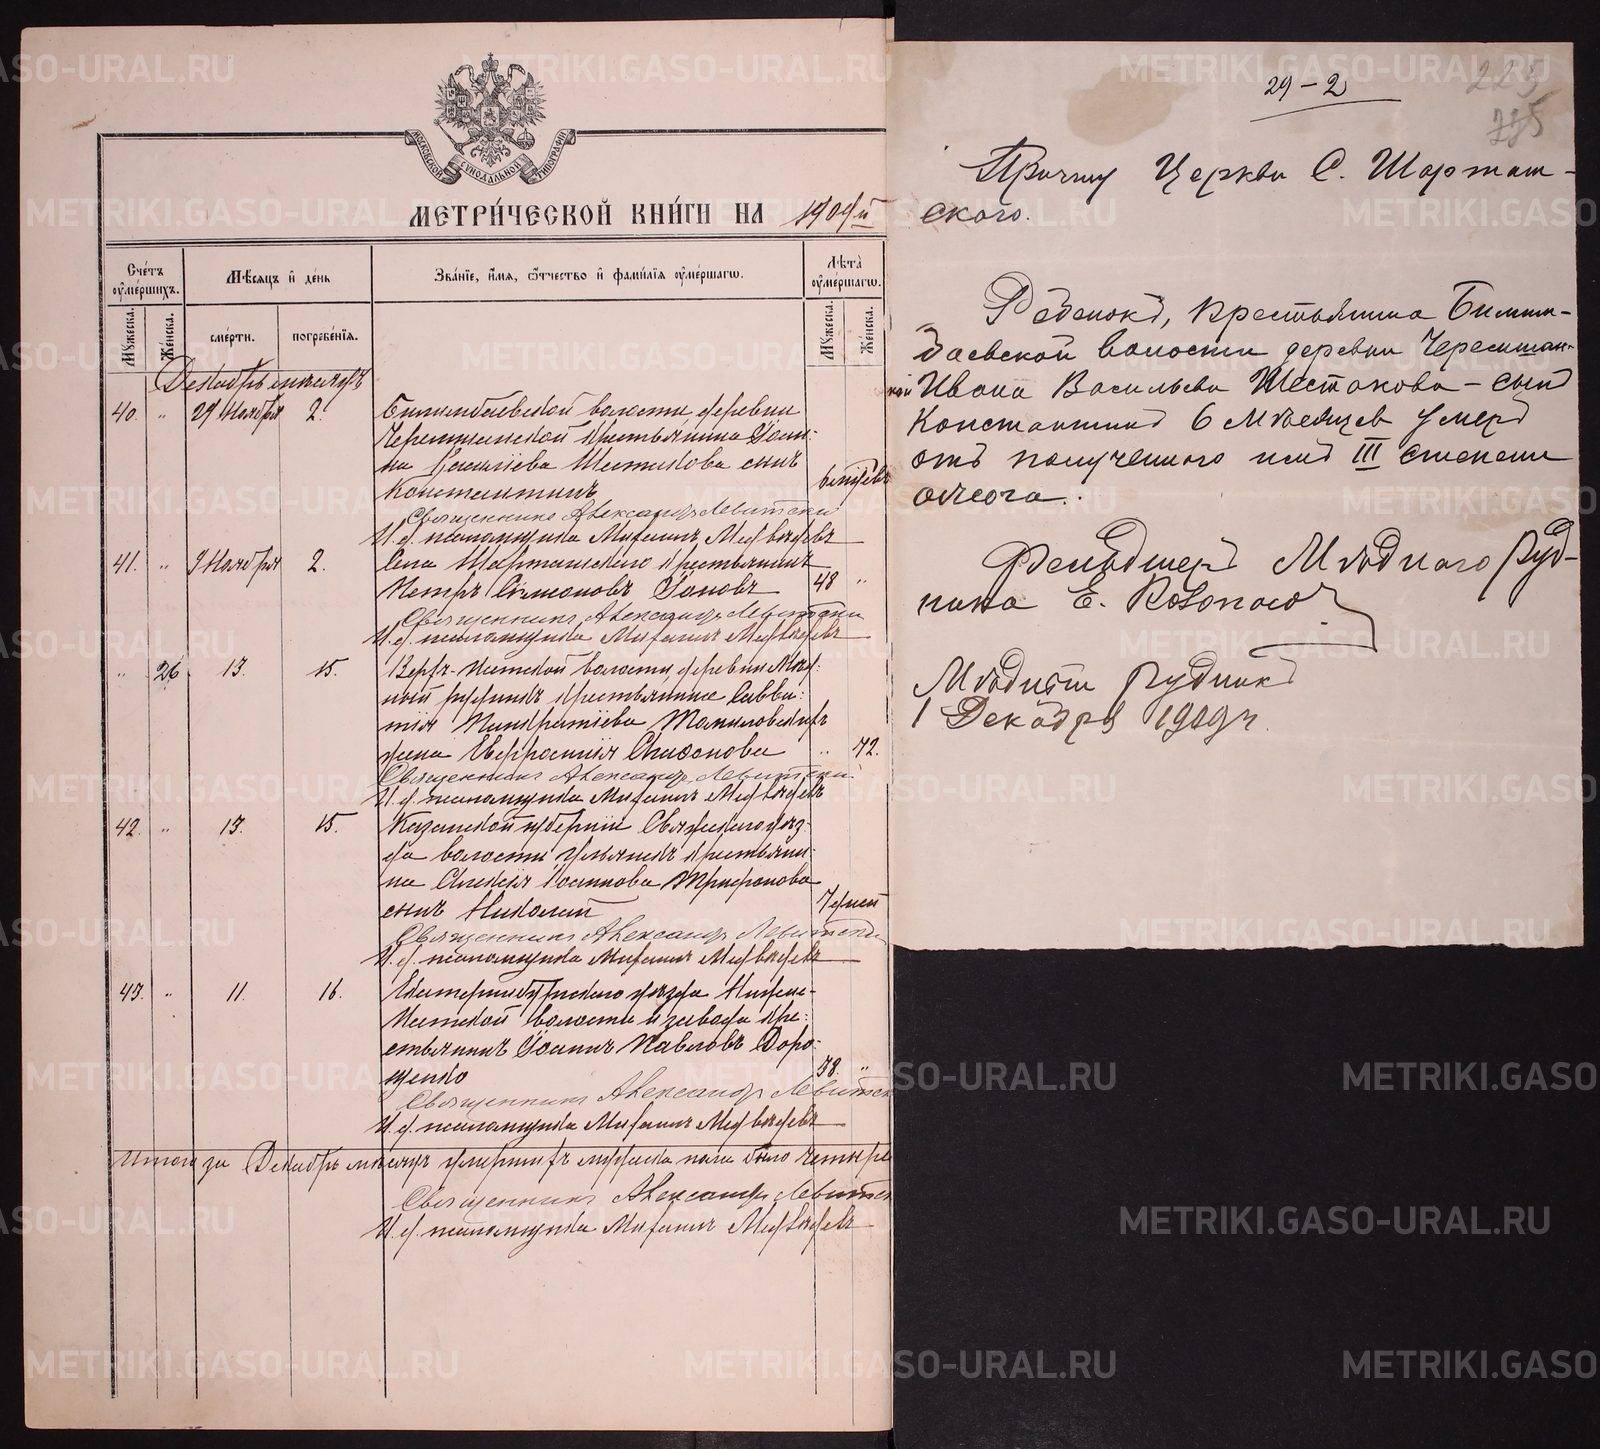 МОСКОВСКОЙ СѴНОДАЛЬНОЙ ТИПОГРАФІИ
МЕТРИ́ЧЕСКОЙ КНИ́ГИ НА 1909й
Сче́тъ оуме́ршихъ.
Мѣ́сяцъ и де́нь
Зва́ніе, и́мя, ѻ́тчество и фами́лія оуме́ршагѡ.
Лѣта̀ оуме́ршагѡ.
Мꙋ́жеска.
Же́нска.
сме́рти.
погребе́нія.
Мꙋ́жеска.
Же́нска.
Декабрь мѣсяцъ
40. " 29 Ноября 2. Билимбаевской волости деревни
Черемшанской крестьянина Іоан-
на Васильева Шестакова сынъ
Константинъ 6 мѣсяцевъ
Священникъ Александръ Левитскій
И. д. псаломщика Михаилъ Медвѣдевъ
41. " Ноября 2. Села Шарташскаго крестьянинъ
Петръ Симоновъ 48 "
Священникъ Александръ Левитскій
И. д. псаломщика Михаилъ Медвѣдевъ
" 26 13. 15. Верхъ-Исетской волости, деревни Мѣд-
ный рудникъ крестьянина Савва-
тія Панкратіева
жена Евфросинія " 72.
Священникъ Александръ Левитскій
И. д. псаломщика Михаилъ Медвѣдевъ
42. " 13. 15. Казанской губерніи Свіяжскаго уѣз-
да волости крестьяни-
на Алексія Іоаннова Трифонова
сынъ Николай 7 дней
Священникъ Александръ Левитскій
И. д. псаломщика Михаилъ Медвѣдевъ
43. " 11. 16. Екатеринбургскаго уѣзда Нижне-
Исетской волости и завода кре-
стьянинъ Іоаннъ Павловъ Доро-
щенко 38. "
Священникъ Александръ Левитск
И. д. псаломщика Михаилъ Медвѣдевъ
Итого за Декабрь мѣсяцъ умершихъ мужеска пола было четыре
Священникъ Александръ Левитск
И. д. псаломщика Михаилъ Медвѣдевъ
29-2
225
Причту Церкви С. Шарташ-
скаго.
Ребенокъ, крестьянина Билим-
баевской волости деревни Черемшан-
ской Ивана Васильева Шестакова - сынъ
Константинъ 6 мѣсяцев умеръ
отъ полученного имъ III степени
ожога.
Фельдшеръ Мѣднаго Руд-
ника Е.
Мѣдный Рудникъ
1 Декабря 1909 г.
METRIKI.GASO-URAL.RU